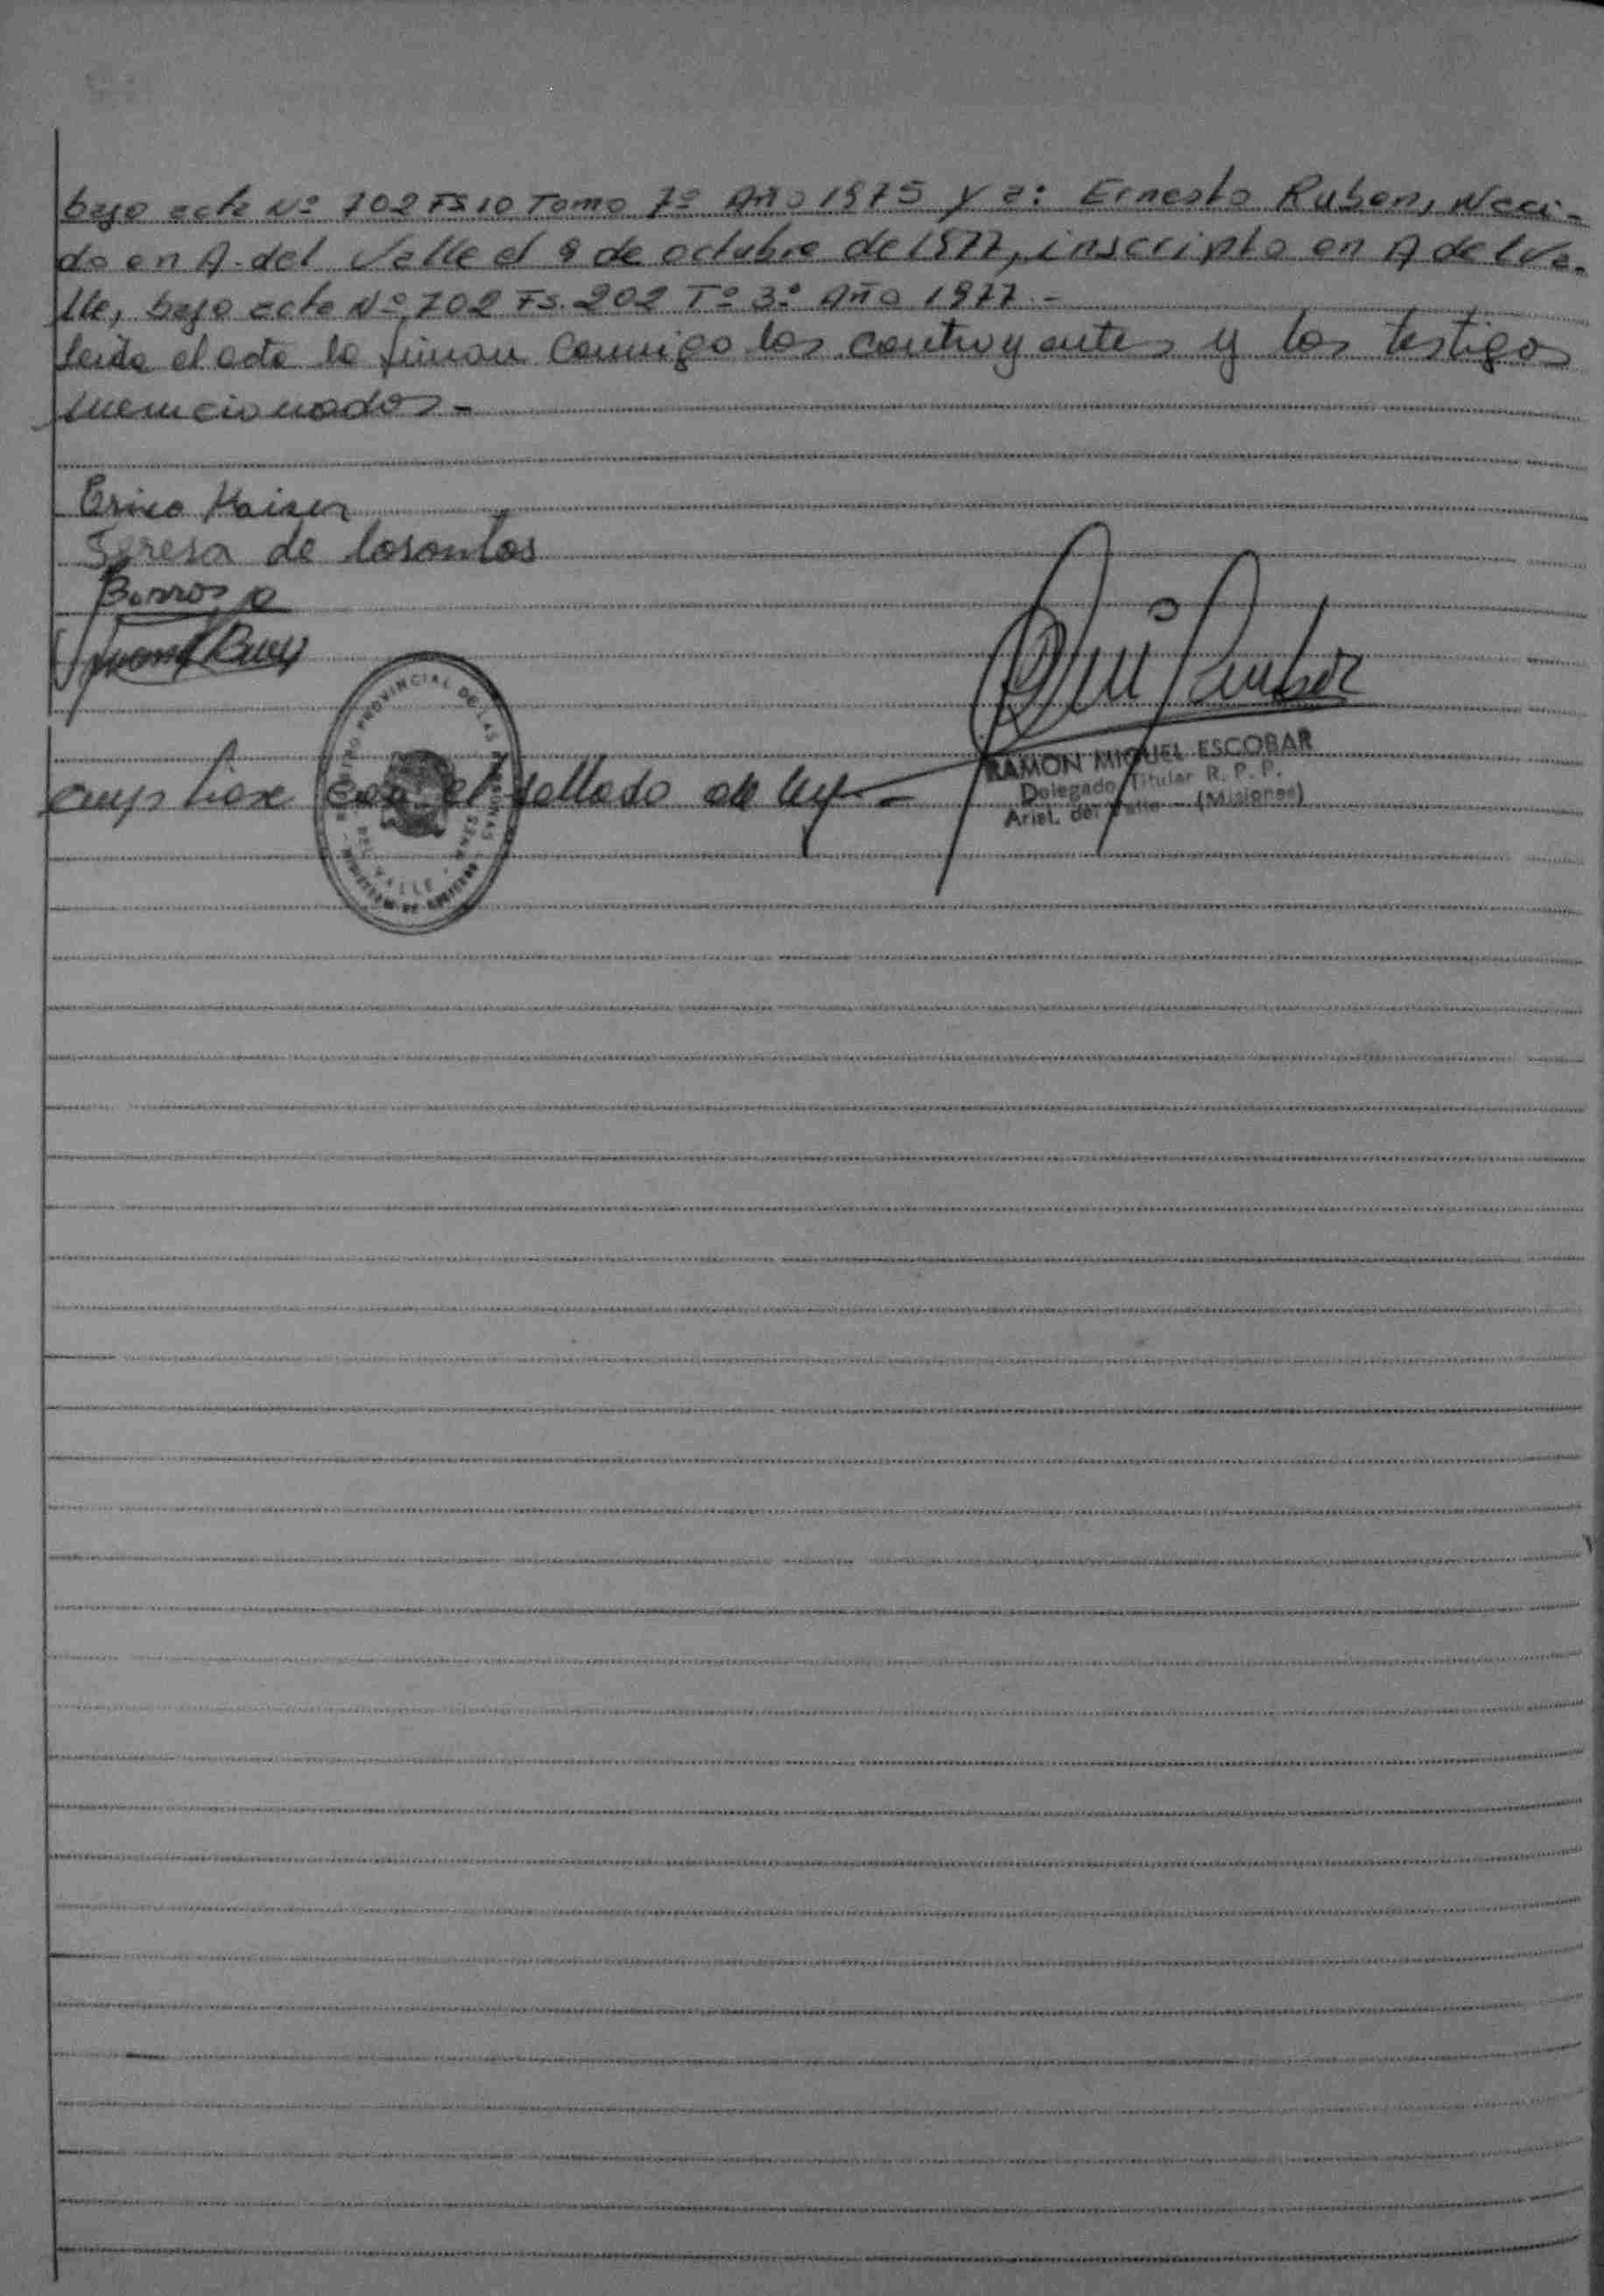 bajo acta Nº 702 Fs 10 Tomo 7º Año 1975 y a: Ernesto Ruben, Naci-
do en A. del Valle el 9 de octubre de 1977, inscripto en A del Va-
lle, bajo acta Nº 702 Fs. 202 Tº 3º Año 1977.-
Leida el acta la firman conmigo los contrayentes y los testigos
mencionados.-
Erico Kaiser
Teresa de losantos
Barros
REGISTRO PROVINCIAL DE LAS PERSONAS
DEL VALLE
RAMON MIGUEL ESCOBAR
Delegado Titular R. P. P.
Arist. del Valle - (Misiones)
con el sellado de ley.-